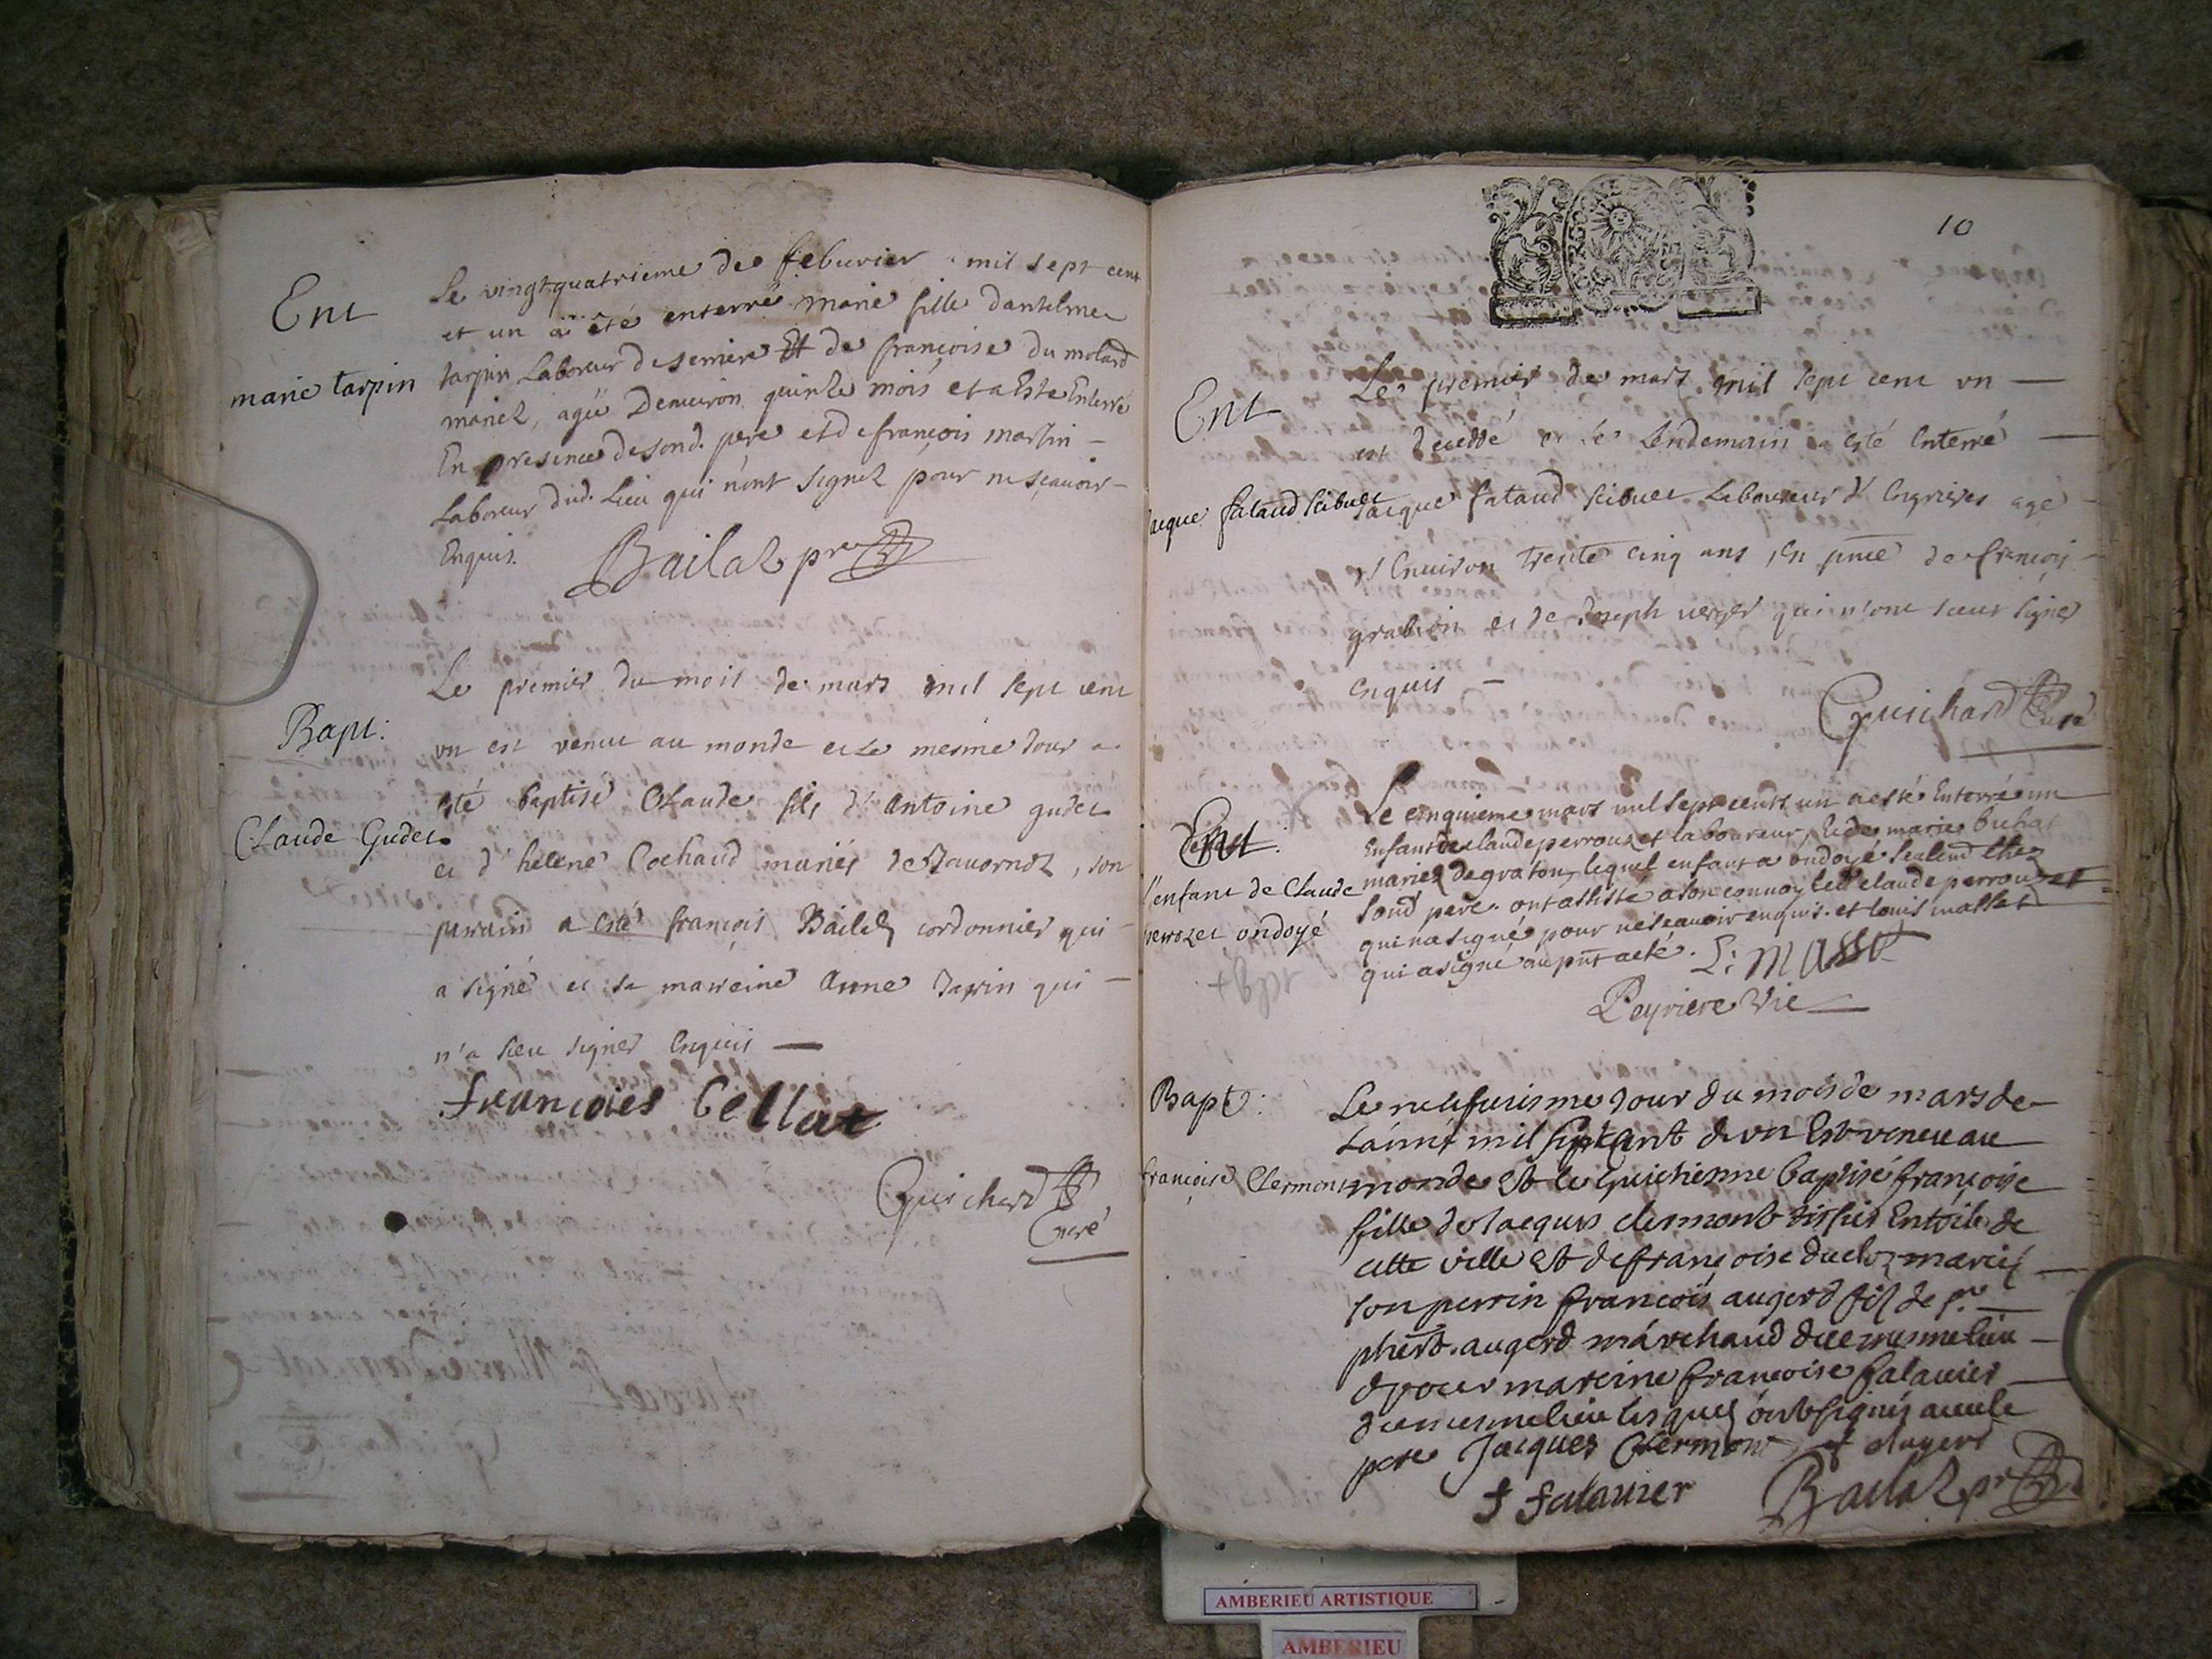 Ent
marie tarpin
Le vingtquatrieme de feburier mil sept cent
et un a êté enterré marie fille dantelme
tarpin Laboreur de serriere Et de françoise du molard
mariez, agée Denuiron quinze mois et a Esté Enterré
En presence de sond. pere et de françois martin
Laboreur dud. Lieu qui n'ont signez pour ne sçauoir
Enquis. Bailaz pre
Bapt:
Claude Gudet
Le premier du mois de mars mil sept cent
vn est venu au monde et le mesme Jour a
esté baptisé Claude fils d'antoine gudet
et d'helene Cochaud mariés de , son
parrain a esté françois Bailly cordonnier qui
a signé et sa marreine Anne tarpin qui
n'a sceu signer Enquis
francoies bellat
Guichard
Curé
10
Ent
Jacque fataud scibuet
Le premier de mars mil sept cent vn
est decedé et le Lendemain a esté Enterré
Jacque fataud scibuet Laboureur d'Engrieres agé
d'Enuiron trente cinq ans, En pnce de françois
grabion et de Joseph verger qui n'ont sceu signer
Enquis
Guichard Curé
Ent:
l'enfant de Claude
perrozet ondoyé
Le cinquieme mars mil sept cents un a esté Enterré un
Enfant de claude perrouzet laboureur, Et de marie buhat
mariez de gratoux, lequel enfant a ondoyé seulemt chez
sond pere. ont assisté a son conuoy led claude perrouzet
qui na signé pour ne sçauoir enquis. et louis massat
qui a signé au pnt acté. L: Masst
Peyriere Vic
Bapt:
françoise Clermont
Le neufuiesme Jour du mois de mars de
L'année mil sept cent & vn Est venue au
monde Et le baptisé françoise
fille de Jacques clermont tissier En toile de
cette ville Et de françoise ducloz mariés
son perrin françois augerd filz de Sr
phert. augerd marchand du mesme lieu
& pour mareine francoise falauier
du mesme lieu lesquels ont signés auec le
pere Jacques Clermont f augerd
f falauier Bailaz pre
AMBERIEU ARTISTIQUE
AMBERIEU